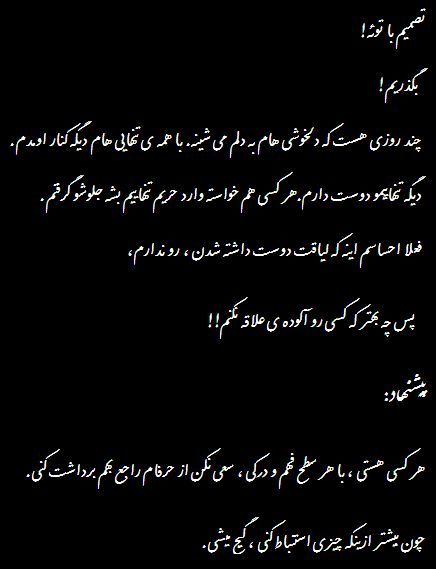 تصمیم با توئه!
بگذریم!
چند روزی هست که دلخوشی هام به دلم می شینه. با همه ی تنهایی هام دیگه کنار اومدم.
دیگه تنهاییمو دوست دارم. هر کسی هم خواسته وارد حریم تنهاییم بشه جلوشو گرفتم.
فعلا احساسم اینه که لیاقت دوست داشته شدن ، رو ندارم،
پس چه بهتر که کسی رو آلوده ی علاقه نکنم!!
پیشنهاد:
هر کسی هستی ، با هر سطح فهم و درکی ، سعی نکن از حرفام راجع بهم برداشت کنی.
چون بیشتر ازینکه چیزی استنباط کنی ، گیج میشی.